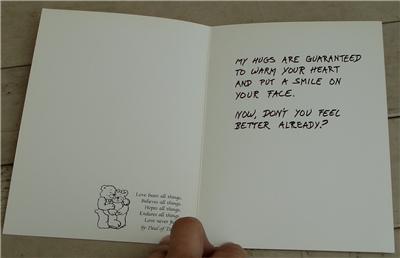 Love bears all things,
Believes all things,
Hopes all things,
Endures all things
Love never
by Deal of
MY HUGS ARE GUARANTEED
TO WARM YOUR HEART
AND PUT A SMILE ON
YOUR FACE.
NOW, DON'T YOU FEEL
BETTER ALREADY?